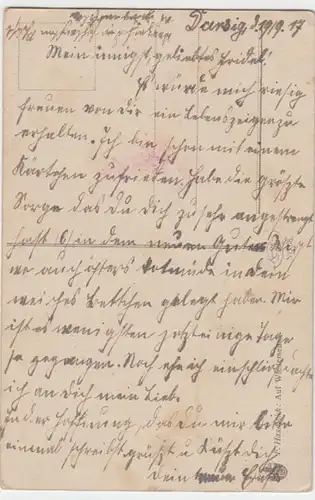 Danzig, d. 19/9. 17
Mein innigst geliebtes Friedel!
Würde mich riesig
freuen von dir ein Lebenszeichen zu
erhalten. Ich bin schon mit einem
Kärtchen zufrieden. Habe die größte
Sorge das du Dich zu sehr angestrengt
hast in dem neuen
wo auch öfters todmüde in Dein
weiches Bettchen gelegt haben. Mir
ist es wenigsten jetzt einige Tage
so gegangen. Noch ehe ich einschlief dachte
ich an Dich mein Lieb.
In der Hoffnung, das Du mir bitte
einmal schreibst grüßt u. küßt Dich
Dein